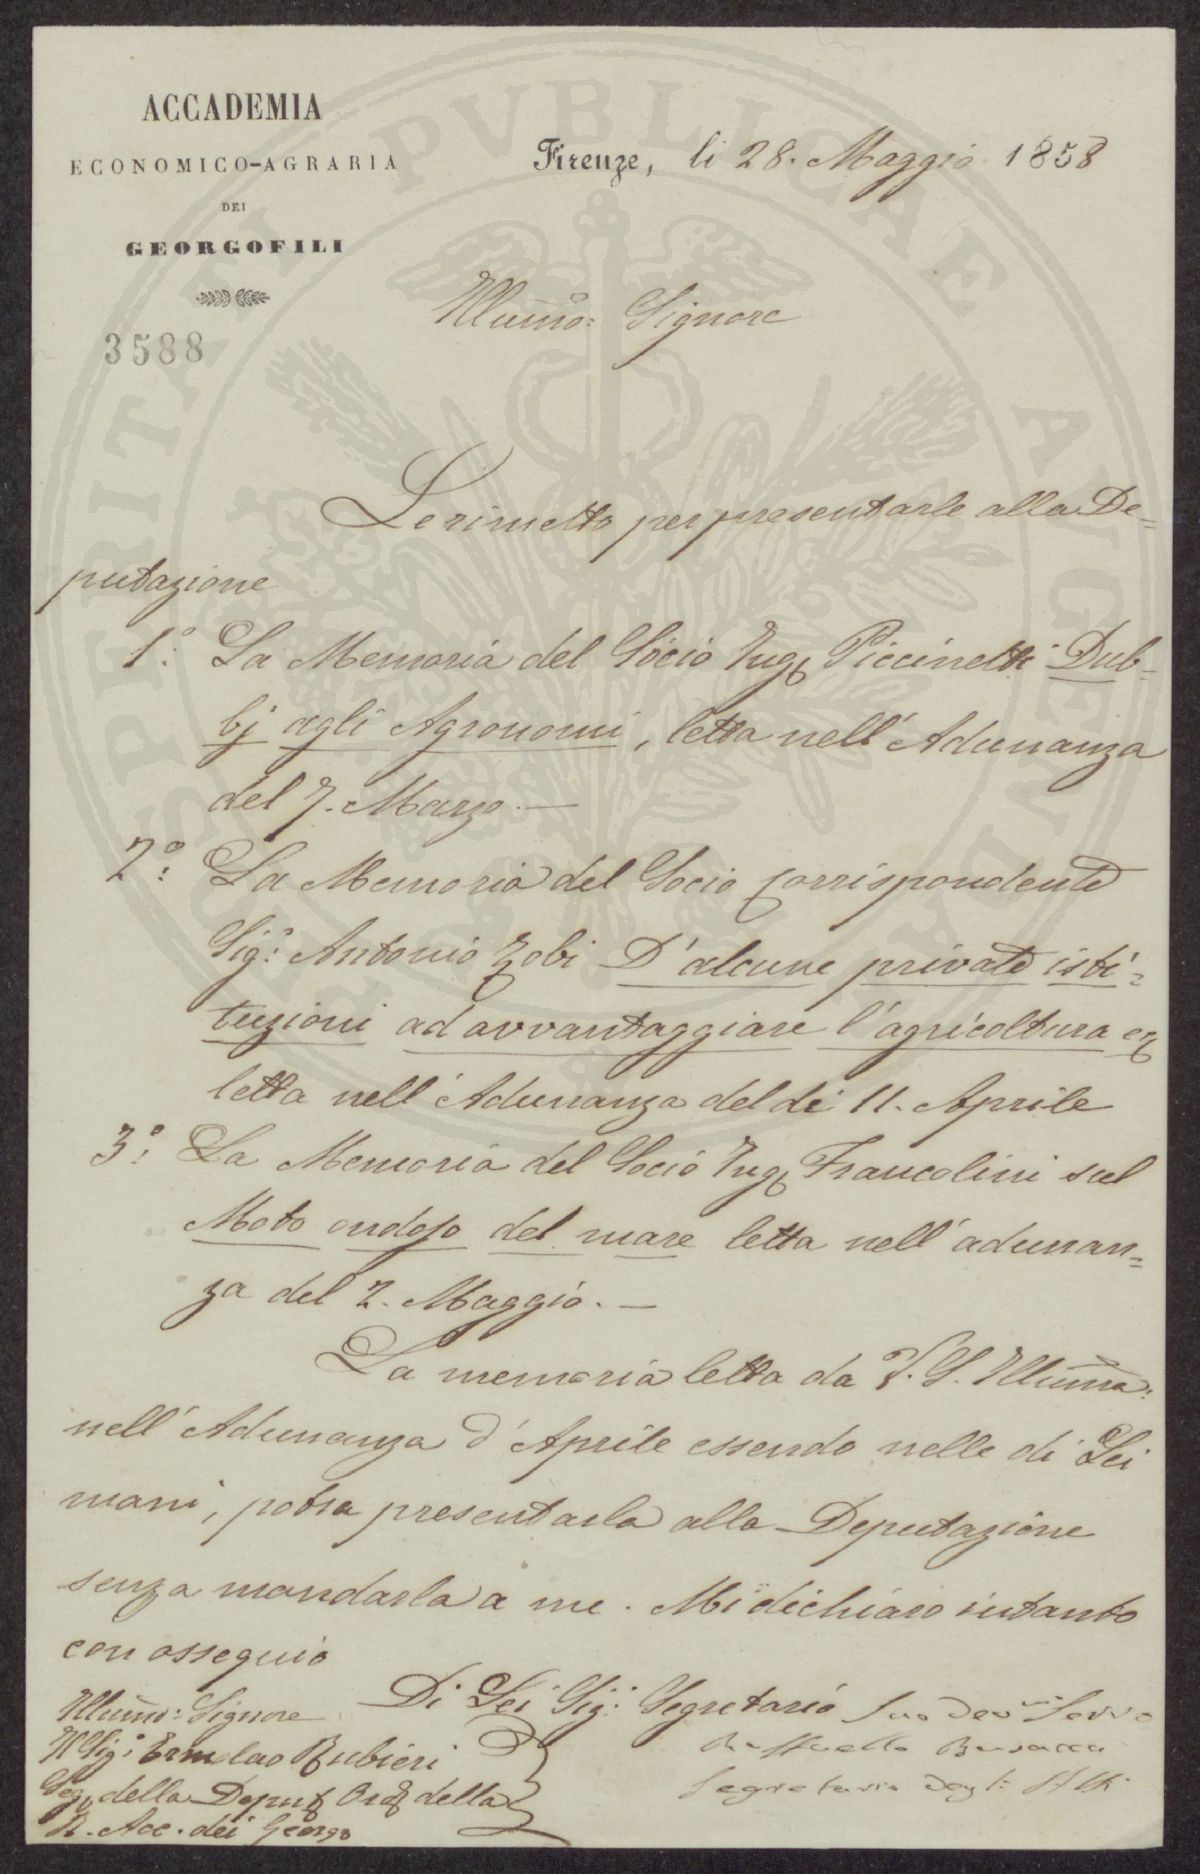 ACCADEMIA
ECONOMICO-AGRARIA
DEI
GEORGOFILI
Firenze, li 28. Maggio 1858
3588
Illumo: Signore
Le rimetto per presentarle alla De=
putazione
1°: La Memoria del Socio Ing. Piccinetti Dub-
bj agli Agronomi, letta nell'Adunanza
del 7. Marzo. —
2°: La Memoria del Socio Corrispondente
Sig:r Antonio Zobi D'alcune private isti=
tuzioni ad avvantaggiare l'agricoltura
letta nell'Adunanza del dì 11. Aprile
3°: La Memoria del Socio Ing. Francolini sul
Moto ondoso del mare letta nell'adunan=
za del 2. Maggio. —
La memoria letta da V. S. Illuma:
nell'Adunanza d'Aprile essendo nelle di Lei
mani, potra presentarla alla Deputazione
senza mandarla a me. Mi dichiaro intanto
con ossequio
Di Lei Sig:r Segretario
Suo Dev Servo
Raffaello Busacca
Segretario degli Atti
Illumo: Signore
Il Sig:r Ermolao Rubieri
Seg. della Deput Ord della
R. Acc. dei Georgo
PROSPERITATI PVBLICAE AVGENDAE